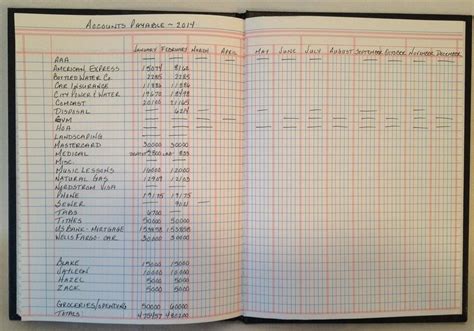 ACCOUNTS PAYABLE ~ 2014
JANUARY FEBRUARY MARCH APRIL MAY JUNE JULY AUGUST SEPTEMBER OCTOBER NOVEMBER DECEMBER
AAA
AMERICAN EXPRESS 15074 8160
BOTTLED WATER CO. 2285 2285
CAR INSURANCE 11986 11986
CITY POWER & WATER 19670 18498
COMCAST 20100 21165
DISPOSAL — 6214
GYM
HOA
LANDSCAPING
MASTERCARD 30000 30000
MEDICAL
MISC.
MUSIC LESSONS 12000
NATURAL GAS 12909
NORDSTROM VISA
PHONE 19175 19175
SEWER — 9021
TABS 6700 —
TITHES 50000 50000
US BANK - MORTGAGE 153858 153858
WELLS FARGO - CAR 30000 30000
BLAKE 15000 15000
JAYLEON 10000 10000
HAZEL 5000 5000
ZACK 5000 5000
GROCERIES/SPENDING 50000 60000
TOTALS